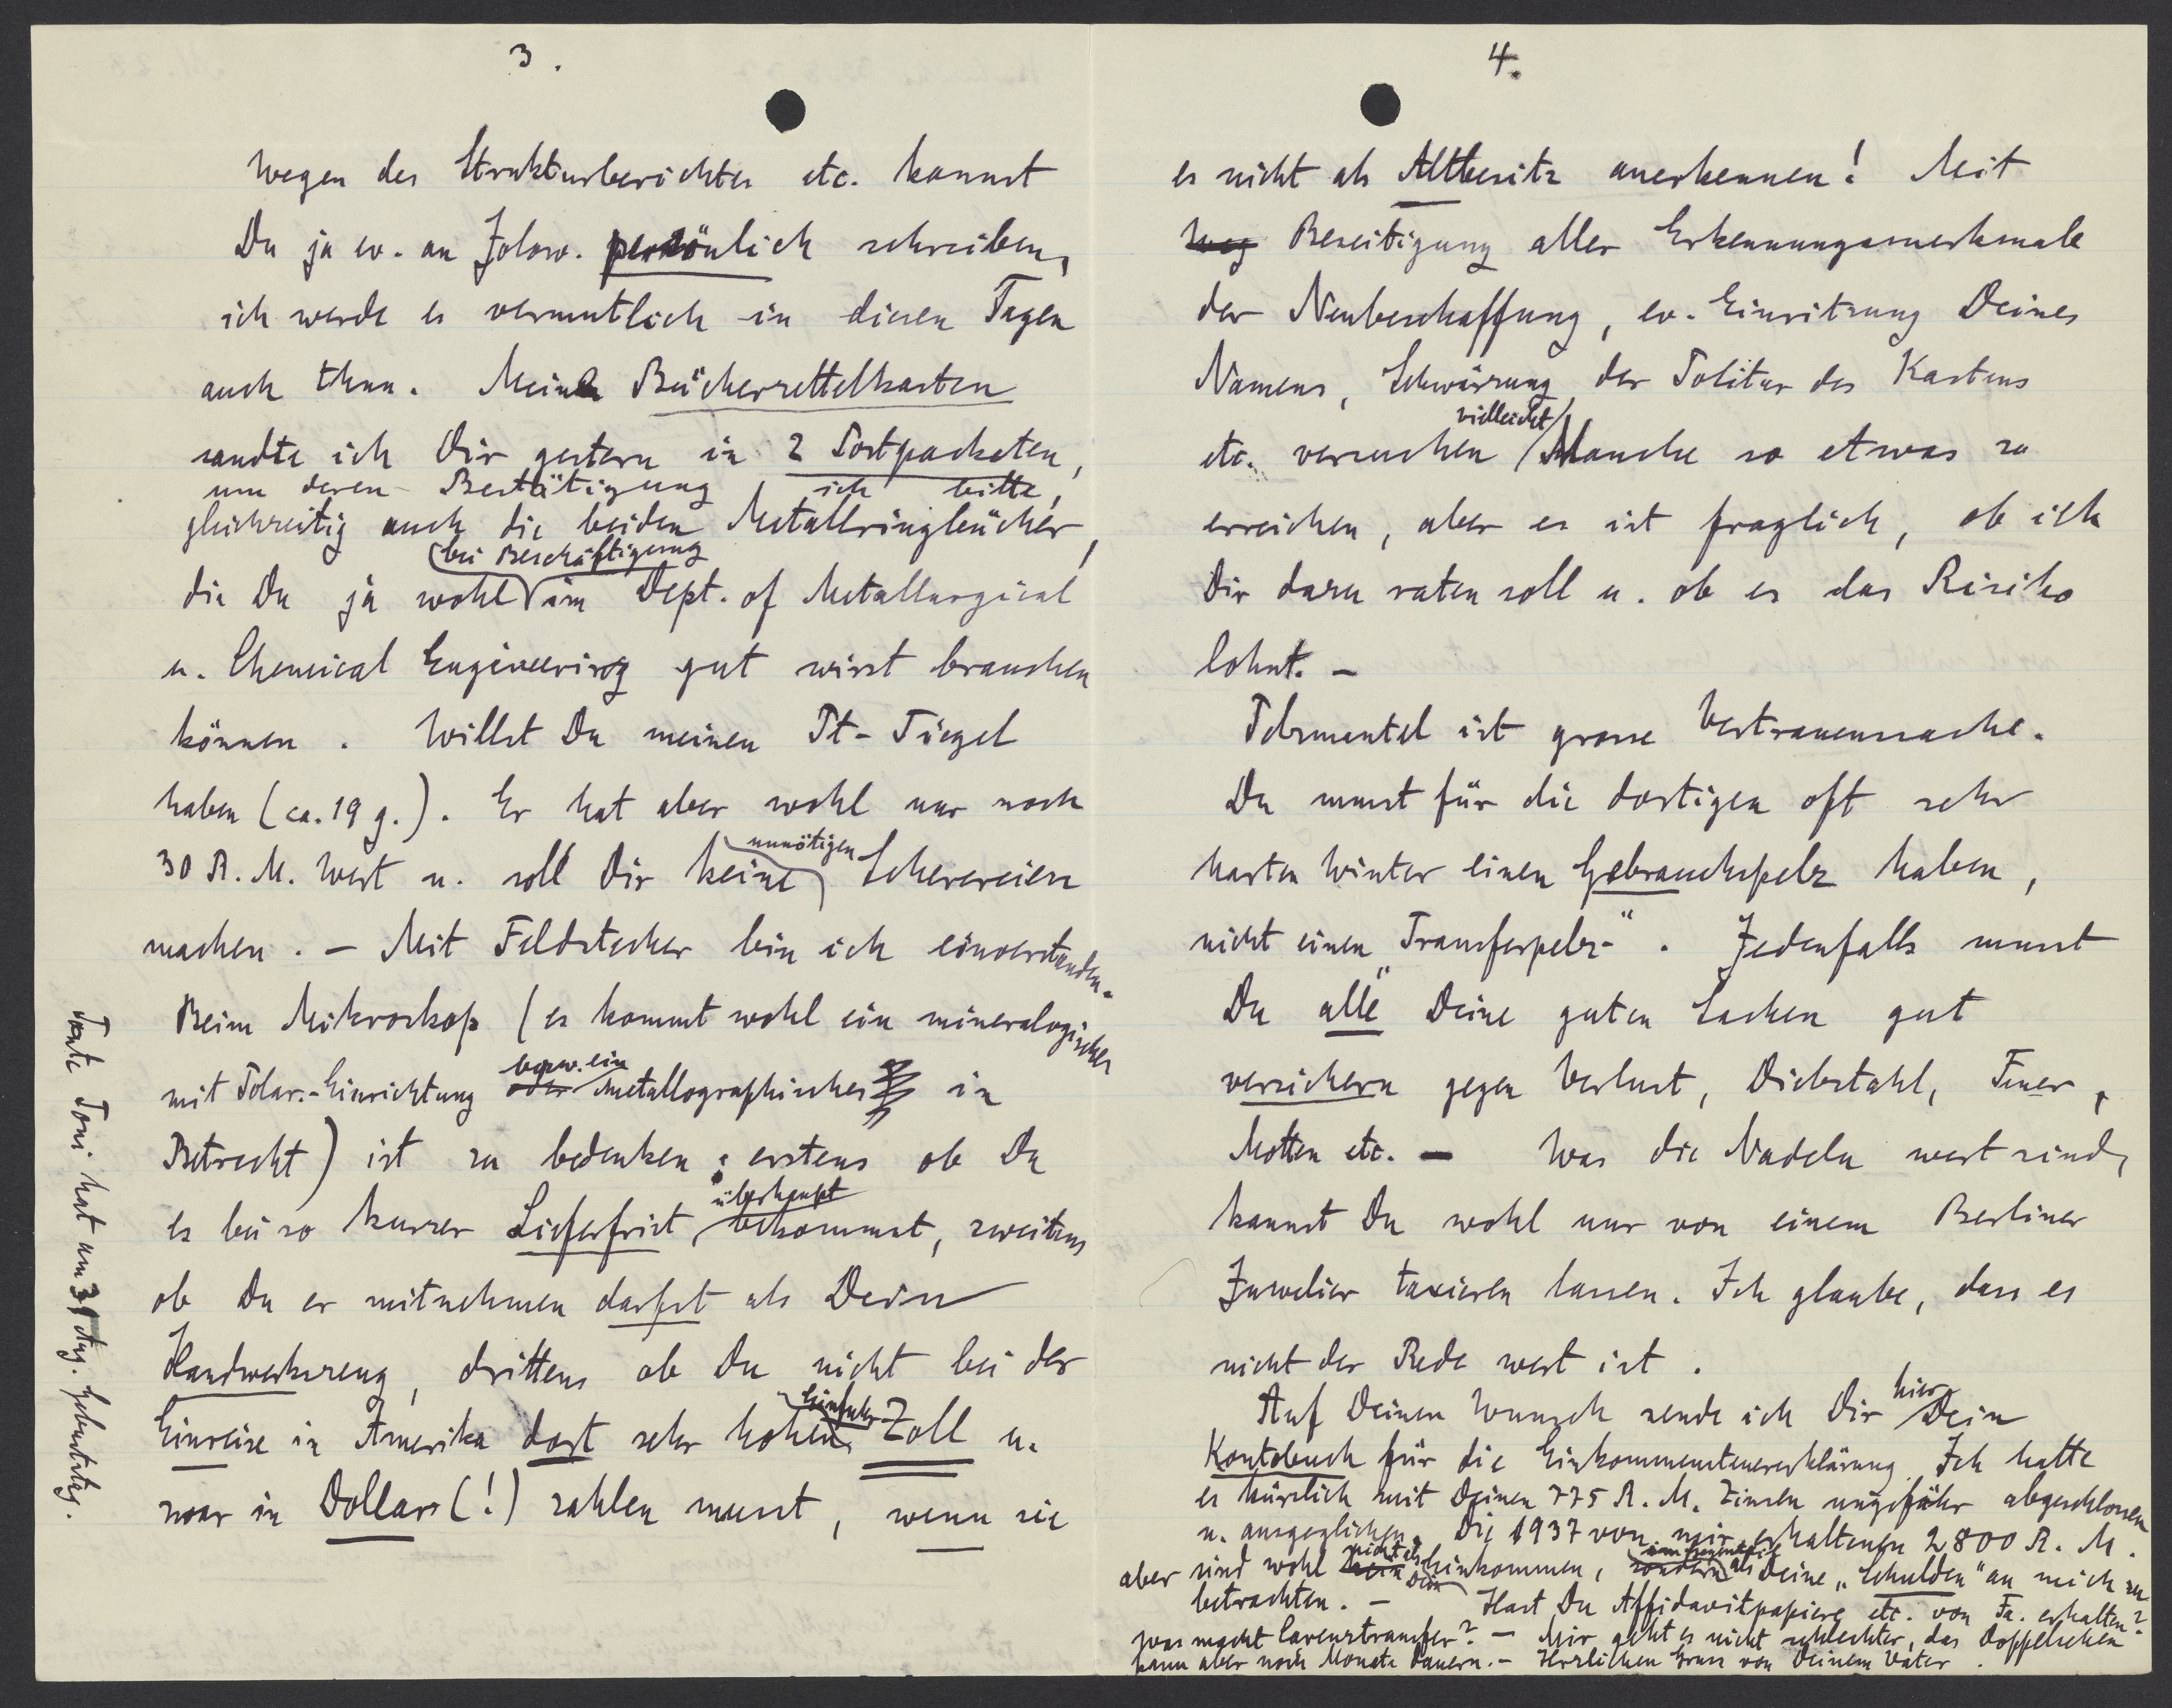 3.
Wegen des Strukturberichtes etc. kannst
Du ja ev. an Jolow. persönlich schreiben,
ich werde es vermutlich in diesen Tagen
auch thun. Meinen Bücherzettelkasten
sandte ich Dir gestern in 2 Postpacketen,
um deren Bestätigung ich bitte,
gleichzeitig auch die beiden Metallringbücher,
die Du ja wohl bei Beschäftigung im Dept. of Metallurgical
u. Chemical Engineering gut wirst brauchen
können. Willst Du meinen Pt-Tiegel
haben (ca. 19 g.). Er hat aber wohl nur noch
30 R.M. Wert u. soll Dir keine unnötigen Scherereien
machen. – Mit Feldstecher bin ich einverstanden.
Beim Mikroskop (es kommt wohl ein mineralogisches
mit Polar.-Einrichtung oder bezw. ein metallographisches in
Betracht) ist zu bedenken: erstens ob Du
es bei so kurzer Lieferfrist überhaupt bekommst, zweitens
ob Du es mitnehmen darfst als Dein
Handwerkszeug, drittens ob Du nicht bei der
Einreise in Amerika dort sehr hohen Einfuhr-Zoll u.
zwar in Dollars (!) zahlen musst, wenn sie
Tante Toni hat am 31 Aug. Geburtstag.
4.
es nicht als Altbesitz anerkennen! Mit
Weg Beseitigung aller Erkennungsmerkmale
der Neubeschaffung, ev. Einritzung Deines
Namens, Schwärzung der Politur des Kastens
etc. versuchen vielleicht Manche so etwas zu
erreichen, aber es ist fraglich, ob ich
Dir dazu raten soll u. ob es das Risiko
lohnt. –
Pelzmantel ist grosse Vertrauenssache.
Du musst für die dortigen oft sehr
harten Winter einen Gebrauchspelz haben,
nicht einen "Transferpelz-". Jedenfalls musst
Du "alle" Deine guten Sachen gut
versichern gegen Verlust, Diebstahl, Feuer,
Motten etc. – Was die Nadeln wert sind,
kannst Du wohl nur von einem Berliner
Juwelier taxieren lassen. Ich glaube, dass es
nicht der Rede wert ist.
Auf Deinen Wunsch sende ich Dir hier Dein
Kontobuch für die Einkommensteuererklärung. Ich hatte
es kürzlich mit Deinen 775 R.M. Zinsen ungefähr abgeschlossen
u. ausgeglichen. Die 1937 von mir erhaltenen 2800 R.M.
aber sind wohl nicht als Dein Einkommen, sondern im Gegenteil als Deine „Schulden" an mich zu
betrachten. – Hast Du Affidavitpapiere etc. von Fa. erhalten?
Was macht Lavenztransfer? – Mir geht es nicht schlechter, das Doppelsehen
kann aber noch Monate dauern. – Herzlichen Gruss von Deinem Vater.